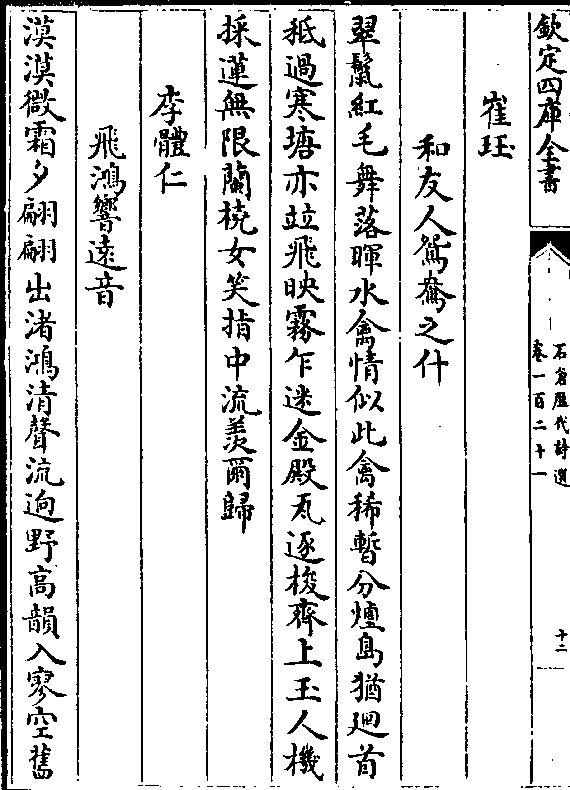 欽定四庫全書
石倉歷代詩選
卷一百二十一
十二
崔珏
和友人鴛鴦之什
翠鬛紅毛舞落暉水禽情似此禽稀暫分煙島猶廻首
秖過寒塘亦竝飛映霧乍迷金殿瓦逐梭齊上玉人機
採蓮無限蘭橈女笑指中流羡爾歸
李體仁
飛鴻響遠音
漠漠微霜夕翩翩出渚鴻清聲流逈野高韻入寥空舊